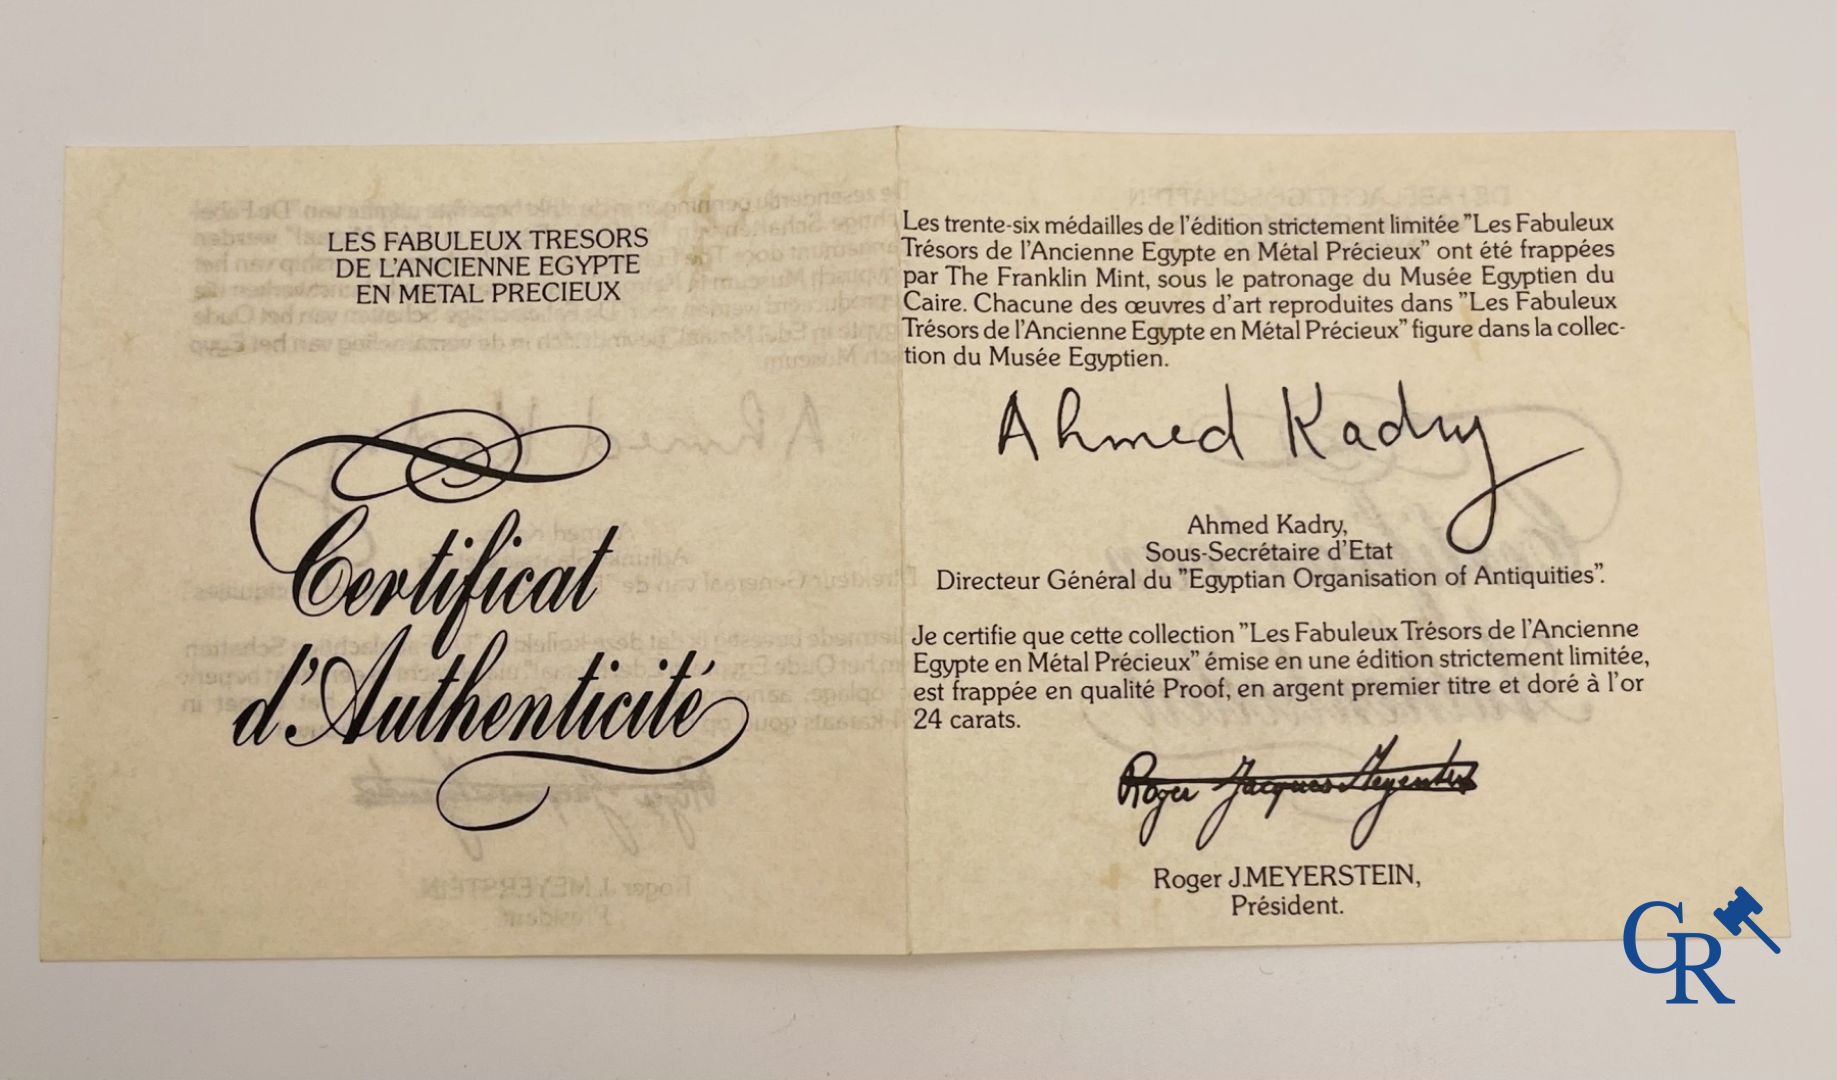 LES FABULEUX TRESORS
DE L'ANCIENNE EGYPTE
EN METAL PRECIEUX
Certificat
d'Authenticité
Les trente-six médailles de l'édition strictement limitée "Les Fabuleux
Trésors de l'Ancienne Egypte en Métal Précieux" ont été frappées
par The Franklin Mint, sous le patronage du Musée Egyptien du
Caire. Chacune des œuvres d'art reproduites dans "Les Fabuleux
Trésors de l'Ancienne Egypte en Métal Précieux" figure dans la collec-
tion du Musée Egyptien.
Ahmed Kadry
Ahmed Kadry,
Sous-Secrétaire d'Etat
Directeur Général du "Egyptian Organisation of Antiquities".
Je certifie que cette collection "Les Fabuleux Trésors de l'Ancienne
Egypte en Métal Précieux" émise en une édition strictement limitée,
est frappée en qualité Proof, en argent premier titre et doré à l'or
24 carats.
Roger Jacques Meyerstein
Roger J.MEYERSTEIN,
Président.
CR